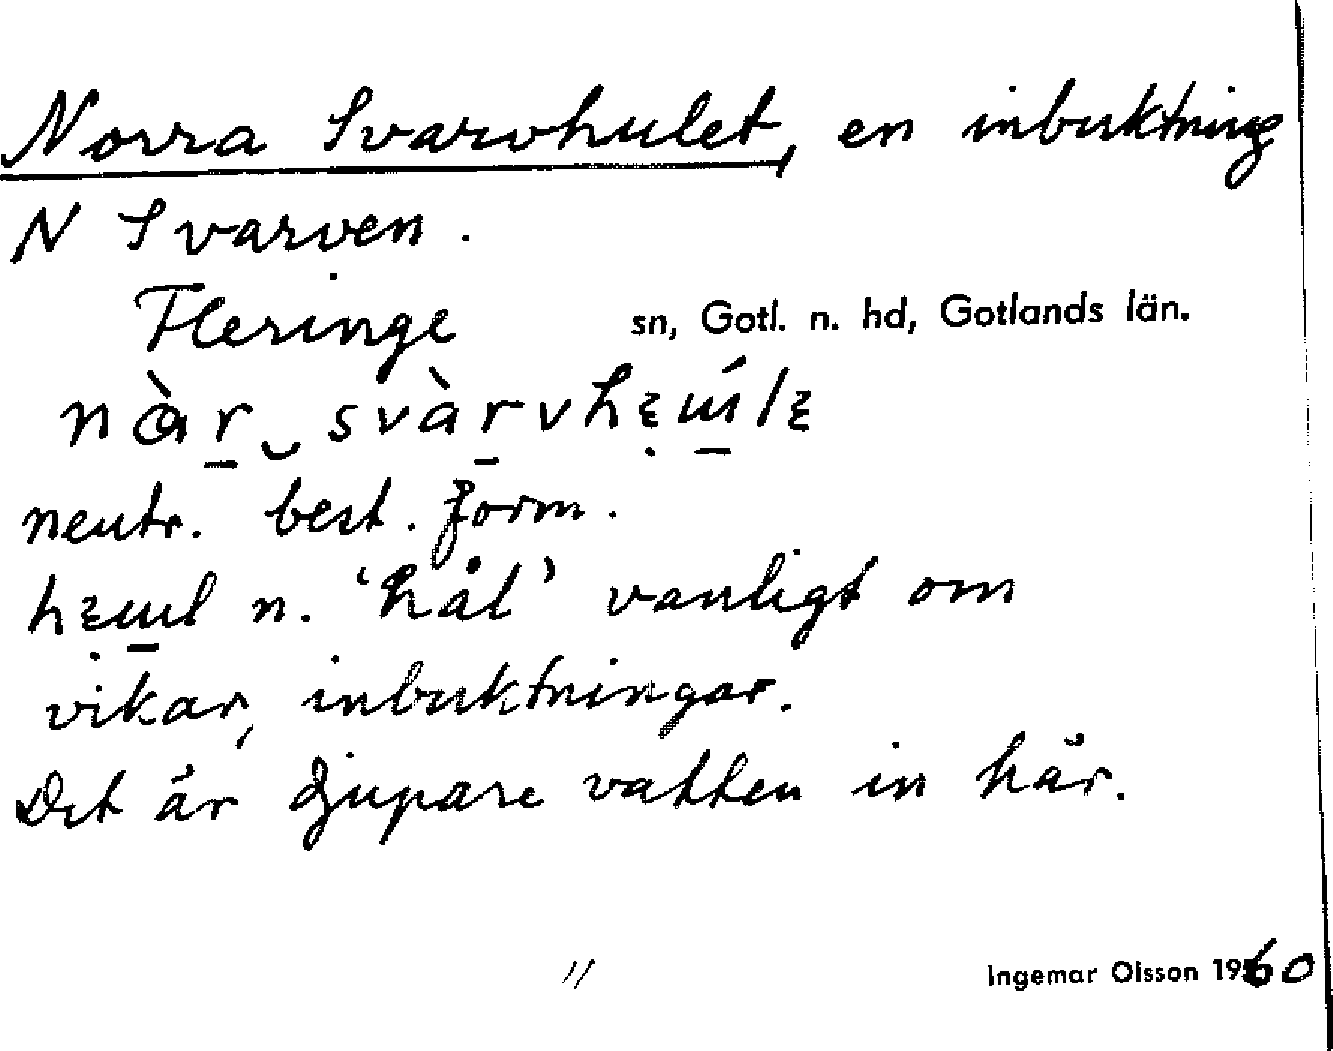 Norra Svarvhulet, en inbuktning
N Svarven.
Fleringe sn, Gotl. n. hd, Gotlands län.
neutr. best. form.
n. 'hål' vanligt om
vikar, inbuktningar.
Det är djupare vatten in här.
" Ingemar Olsson 1960